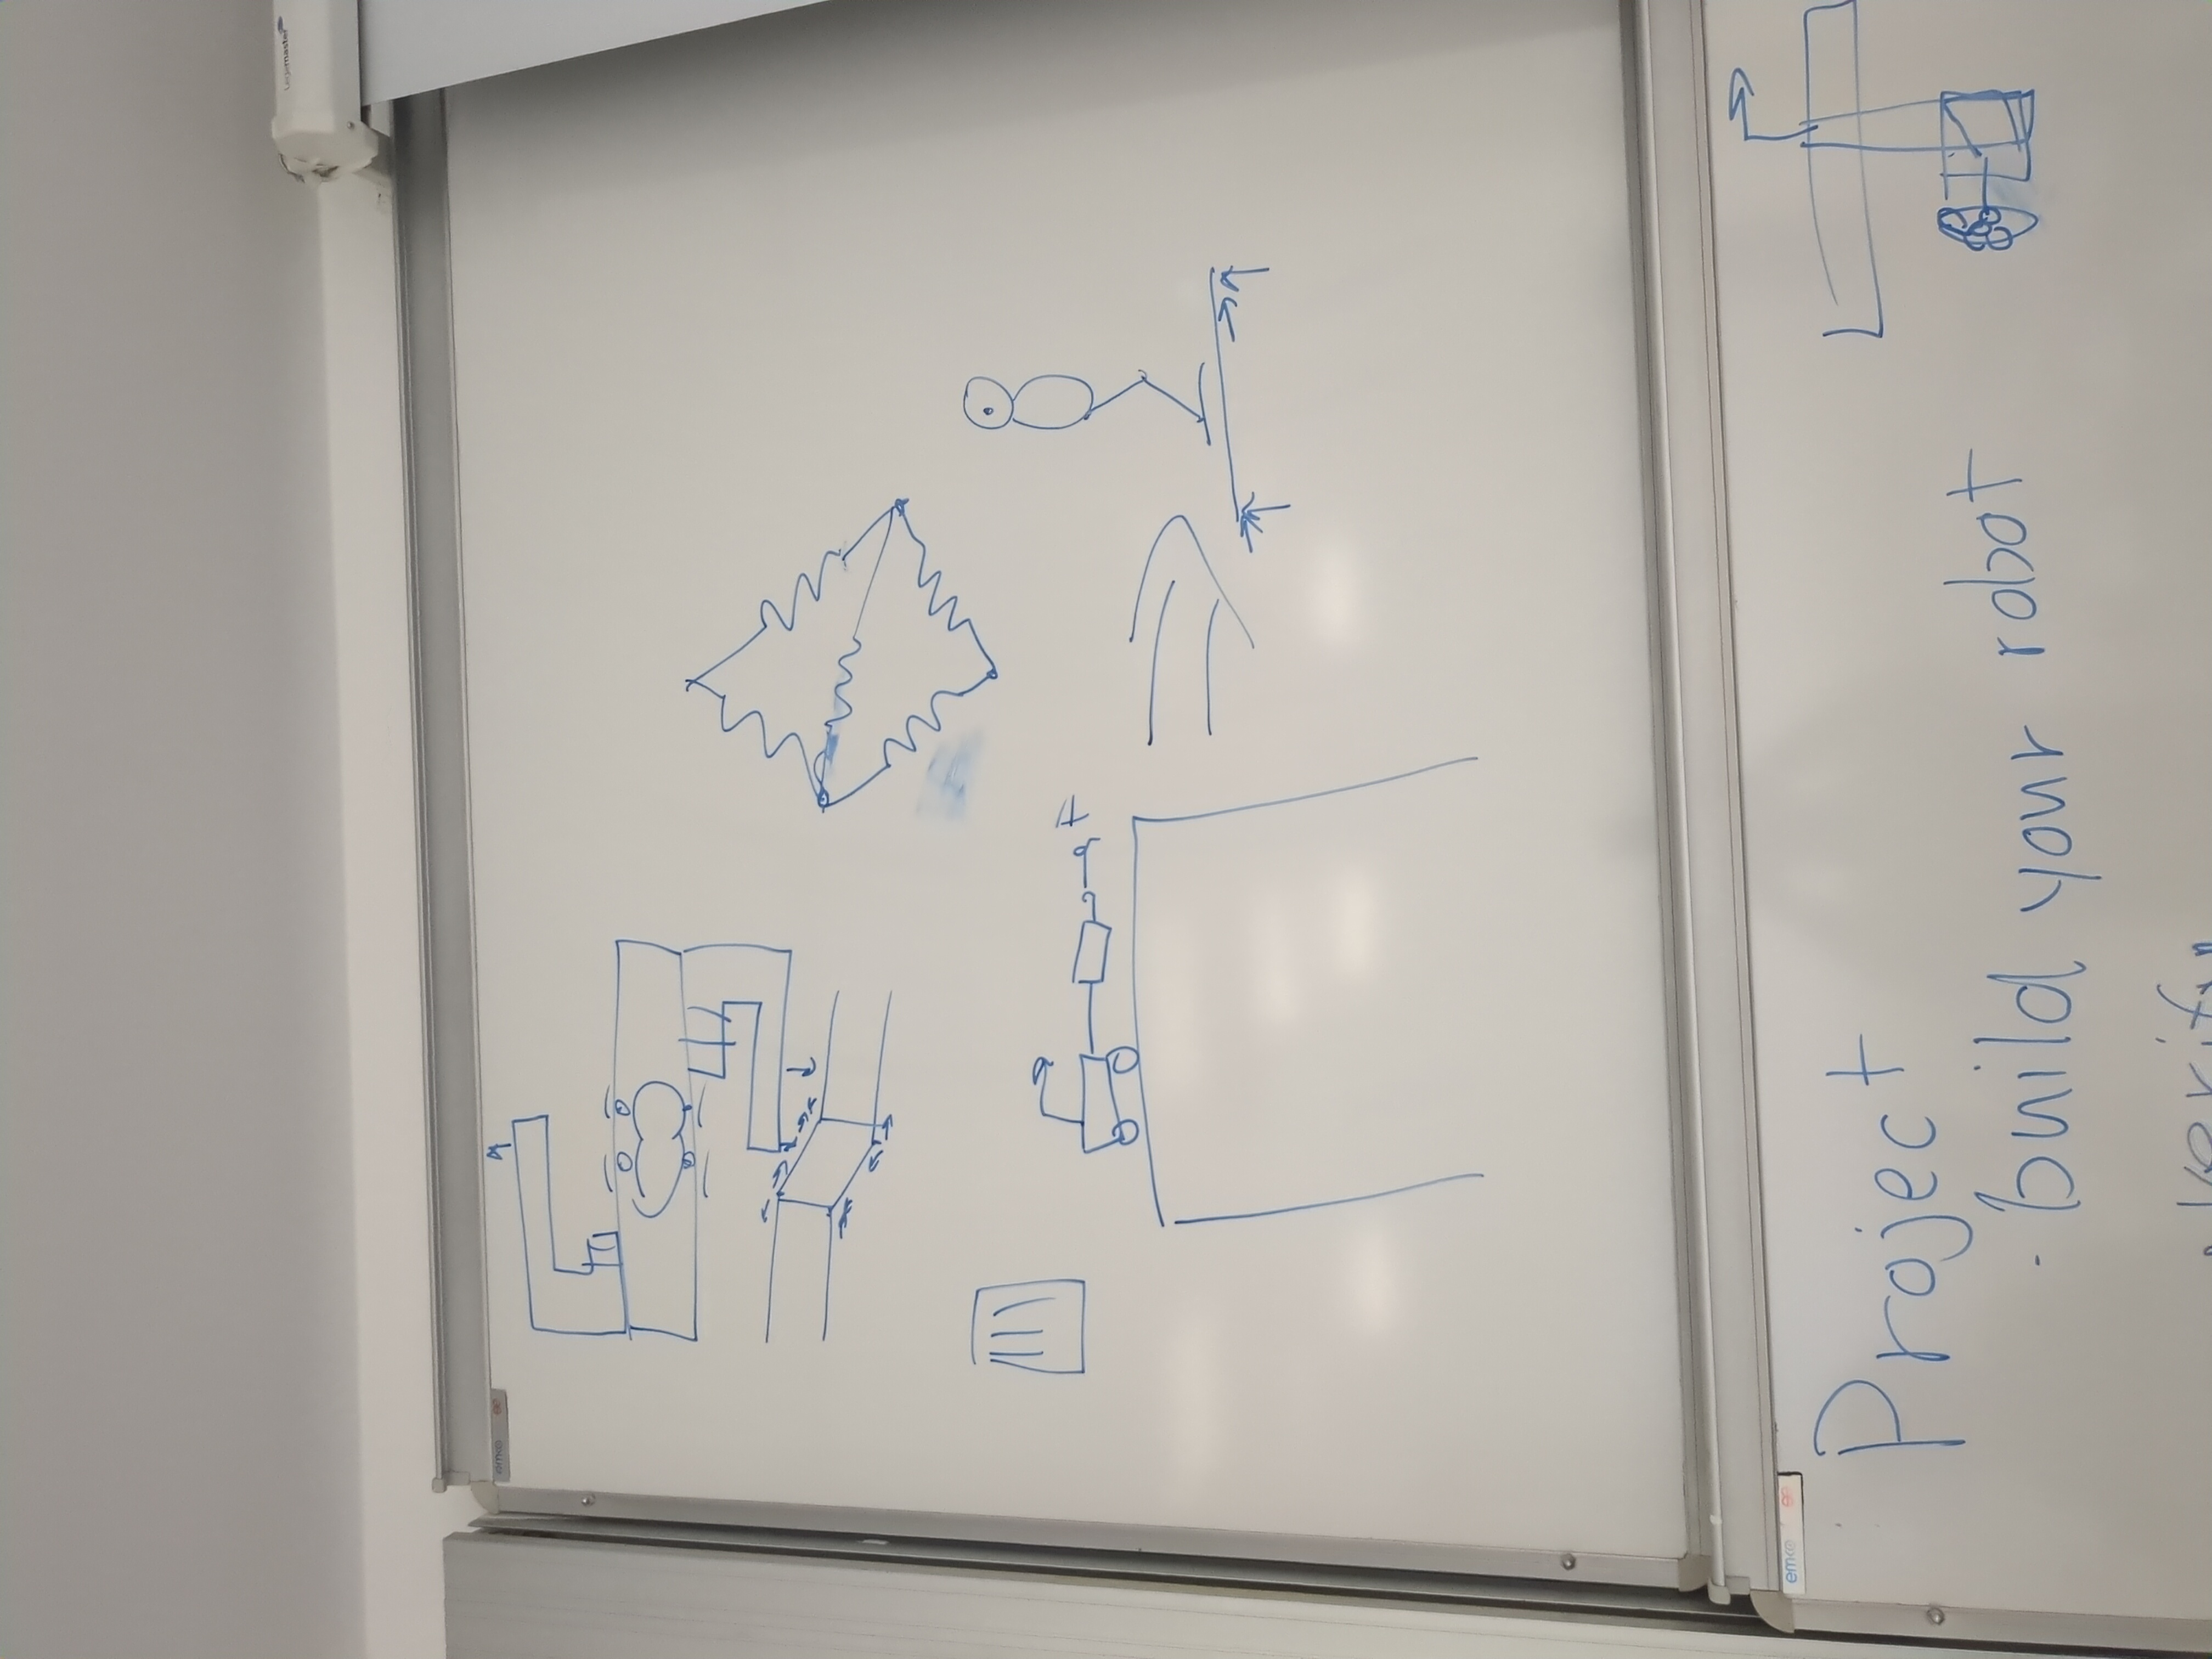 Legamaster
emko
F
emko
Project
- build your robot
verify